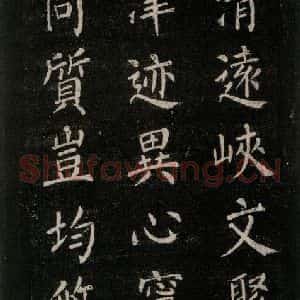 清遠峽文
津迹異心
同質豈均
Shufawang.CN